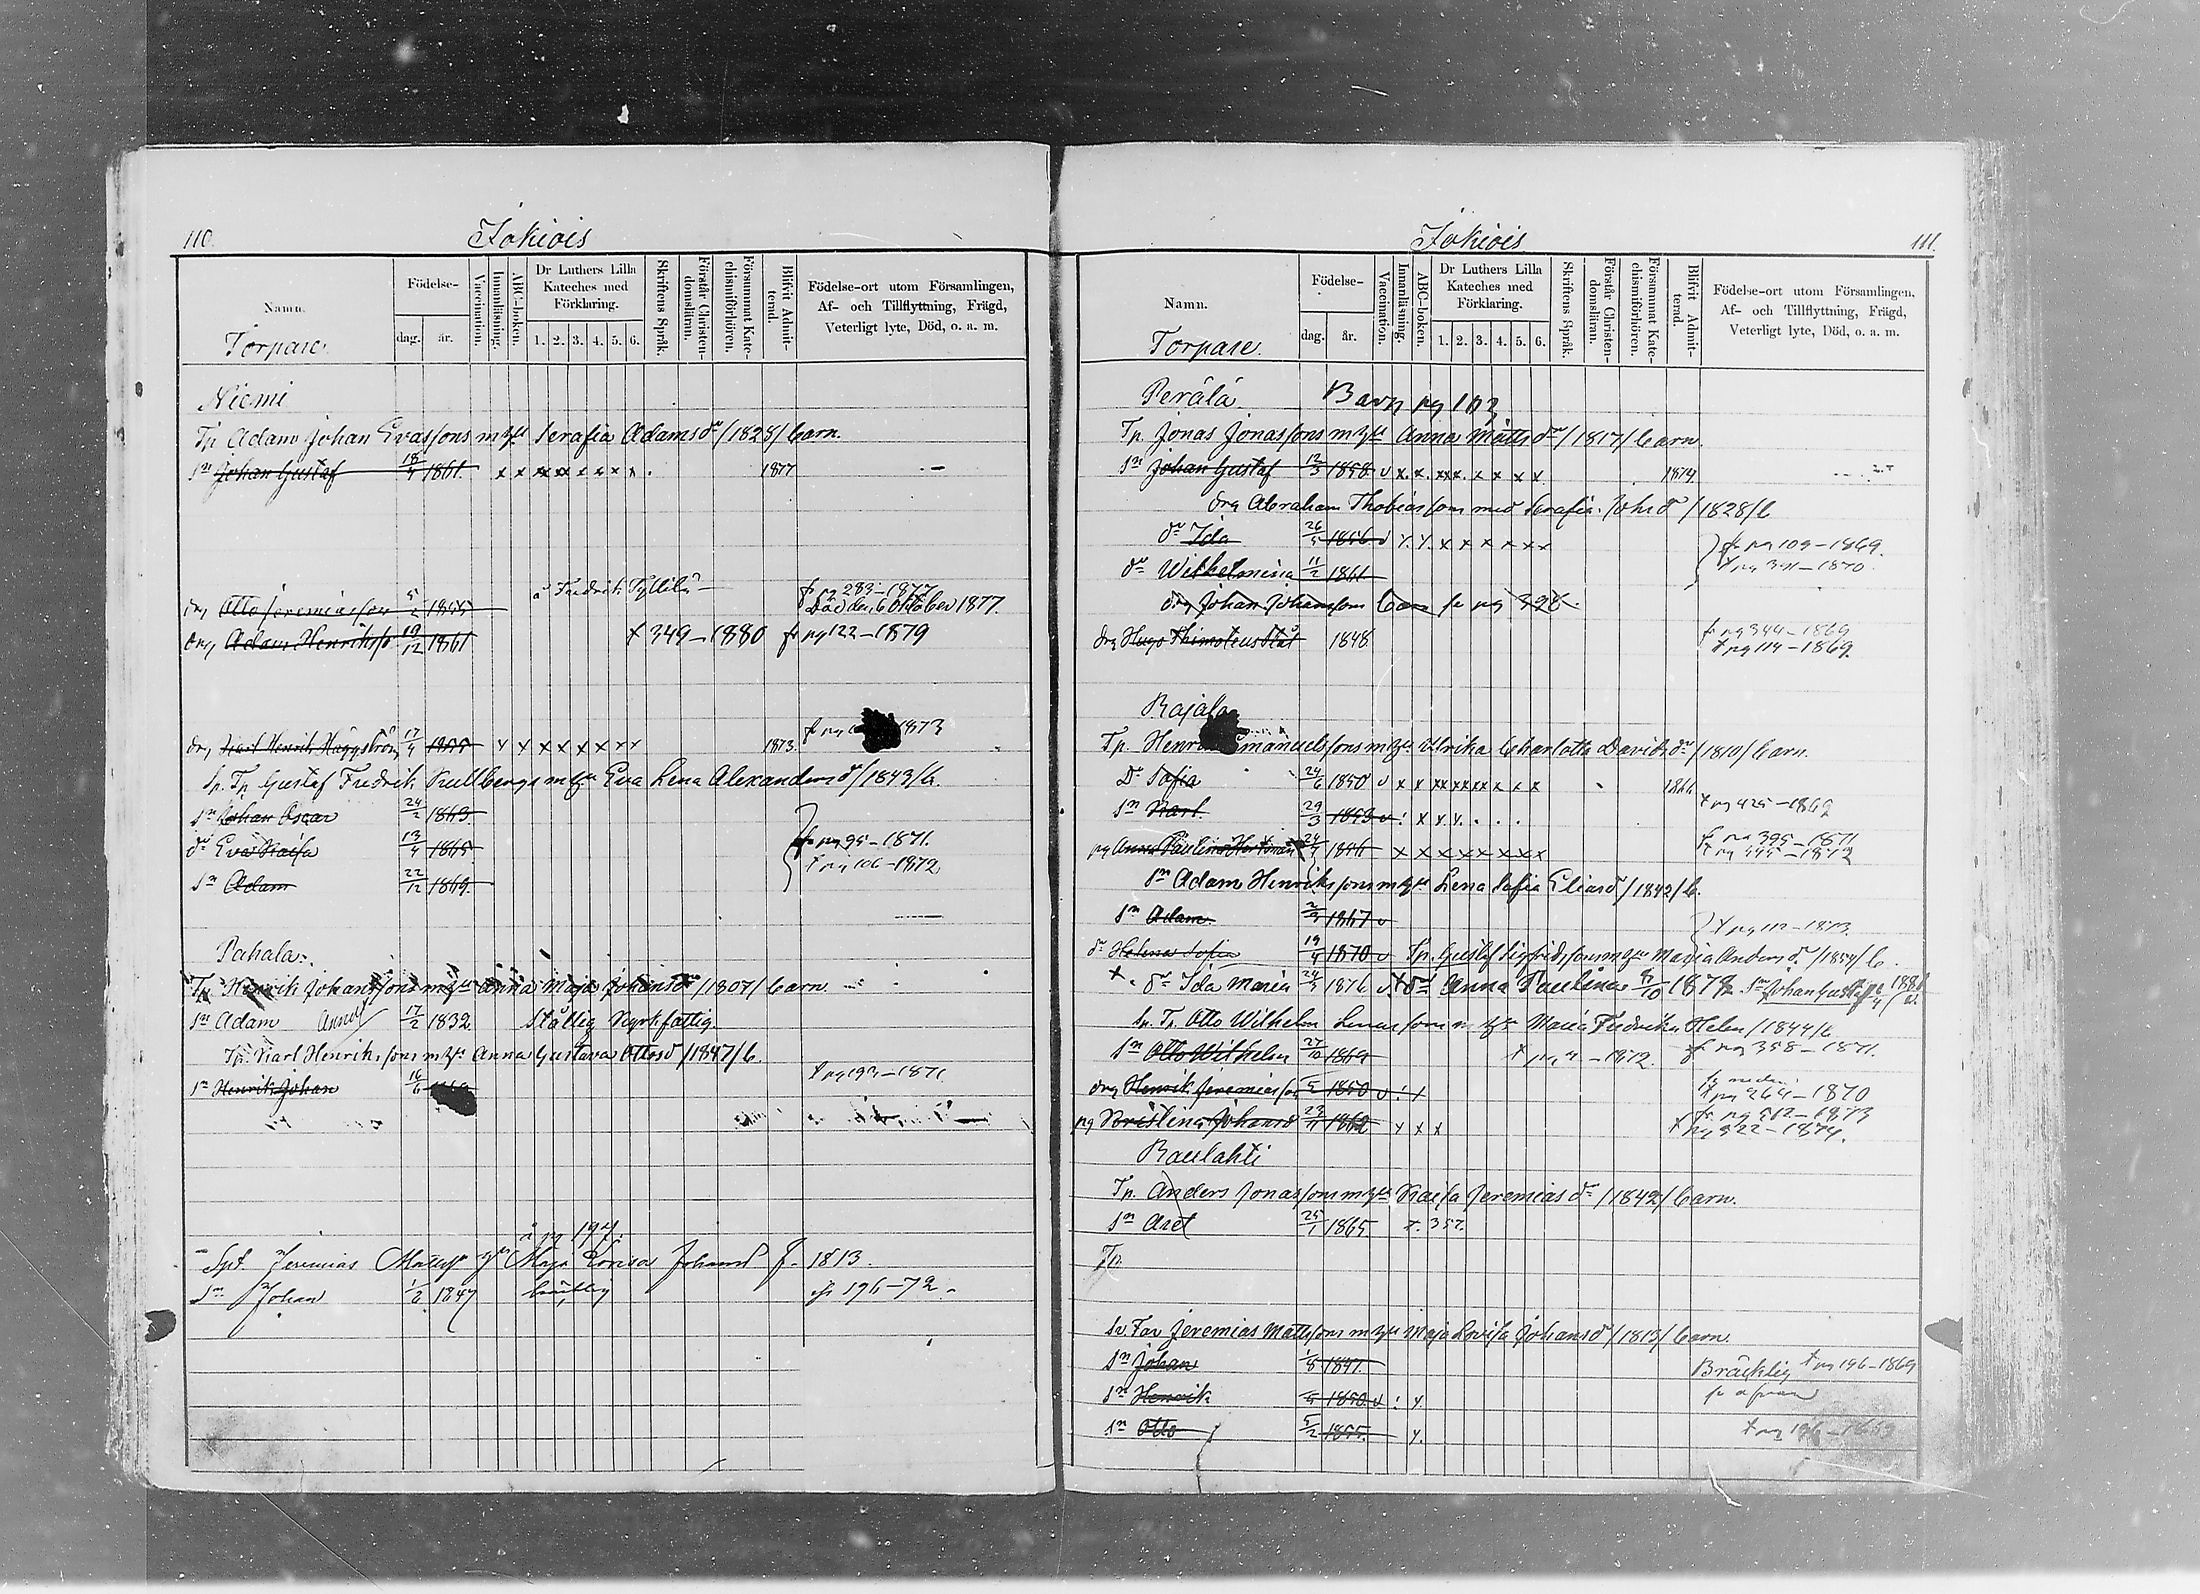 110.
Jokiois
Namn.
Födelse-
dag.
år.
Vaccination.
Innanläsning.
ABC-boken.
Dr Luthers Lilla Kateches med Förklaring.
1. 2. 3. 4. 5. 6.
Skriftens Språk.
Förstår Christendomsläran.
Försummat Katechismiförhören.
Blifvit Admitterad.
Födelse-ort utom Församlingen,
Af- och Tillflyttning, Frägd,
Veterligt lyte, Död, o. a. m.
Torpare.
Niemi
Tp. Adam Johan Evassons m hu Serafia Adamsdr /1828/ barn.
sn Johan Gustaf 18/7 1861. x x x x x x x x x 1877
fr pg 283-1877
drg Otto Jeremiasson 5/2 1855 Död den 6 Oktober 1877.
drg Adam Henrikss. 19/12 1861 t 349-1880 fr pg 122-1879
drg Karl Henrik Häggström 17/4 1855 x x x x x x x x 1873. 1873
Sp. Tp. Gustaf Fredrik Kullbergs m hu Eva Lena Alexandersdr /1843/ b.
sn Johan Oscar 24/2 1863.
dr Eva Kaisa 13/4 1865 fr pg 95-1871.
t pg 106-1872
sn Adam 22/12 1869
Pahala.
Tp. Henrik Johanssons m hu Anna Maja Johansdr /1807/ barn
sn Adam 17/2 1832 Ståttlig Kyrkfattig.
Tp. Karl Henrikssons m hu Anna Gustava Ottosd /1847/ b.
sn Henrik Johan 16/6 t pg 193-1871
å pg 197.
Spt. Jeremias Mattss hu Maja Lovisa Johansd f. 1813.
sn Johan 1/8 1847 bräcklig fr 196-72.
111.
Jokiois
Namn.
Födelse-
dag.
år.
Vaccination.
Innanläsning.
ABC-boken.
Dr Luthers Lilla Kateches med Förklaring.
1. 2. 3. 4. 5. 6.
Skriftens Språk.
Förstår Christendomsläran.
Försummat Katechismiförhören.
Blifvit Admitterad.
Födelse-ort utom Församlingen,
Af- och Tillflyttning, Frägd,
Veterligt lyte, Död, o. a. m.
Torpare.
Perälä. Barn pg 103
Tp. Jonas Jonassons m hu Anna Mattsdr /1817/ barn
sn Johan Gustaf 12/3 1858 v x x x x x x x x x 1874
drg Abraham Thobiasson med Serafia Johsdr /1828/ b
dr Ida 26/5 1856 v x x x x x x x x fr pg 109-1869.
dr Wilhelmina 11/2 1861 t pg 391-1870
drg Johan Johansson barn fr pg 398
drg Hugo Thimoteus Stål 1848. fr pg 344-1869
t pg 114-1869.
Rajala
Tp. Henrik Emanuelssons m hu Ulrika Charlotta Davidsdr /1810/ barn.
Dr Sofia 24/6 1850 v x x x x x x x x x x 1866
sn Karl. 29/3 1853 v : x x x t pg 425-1869
pg Anna Paulina 24/4 1856 x x x x x x x x fr pg 395-1871
t pg 445-1872
sn Adam Henrikssons m hu Lena Sofia Eliasd /1842/ b.
sn Adam 1867 v
t pg 112-1873
dr Helena Sofia 19/4 1870 v Tp. Gustaf Sigfridssons m hu Maria Andersdr /1854/ b.
dr Ida Maria 24/5 1876 v dr Anna Paulina 8/10 1879 sn Johan Gustaf 1881
Sp. Tp. Otto Wilhelm m hu Maria Fredrika Helen /1844/ b
sn Otto Wilhelm 27/10 1869 t pg 4-1872. fr pg 358-1871.
drg Henrik Jeremiasson 1850 v : x fr nedan
t pg 264-1870
pg Kristina Johansd 23/11 1862 x x x fr pg 512-1873
t pg 322-1874.
Raulahti
Tp. Anders Jonassons m hu Kaisa Jeremiasdr /1842/ barn.
sn Axel 25/1 1865 t. 357.
Tp.
Sv Far Jeremias Mattssons m hu Maja Lovisa Johansd /1813/ barn.
sn Johan 1/8 1847. Bräcklig t pg 196-1869
sn Henrik 1850. v : x fr ofvan
sn Otto 5/2 1855. x. t pg 196-1869